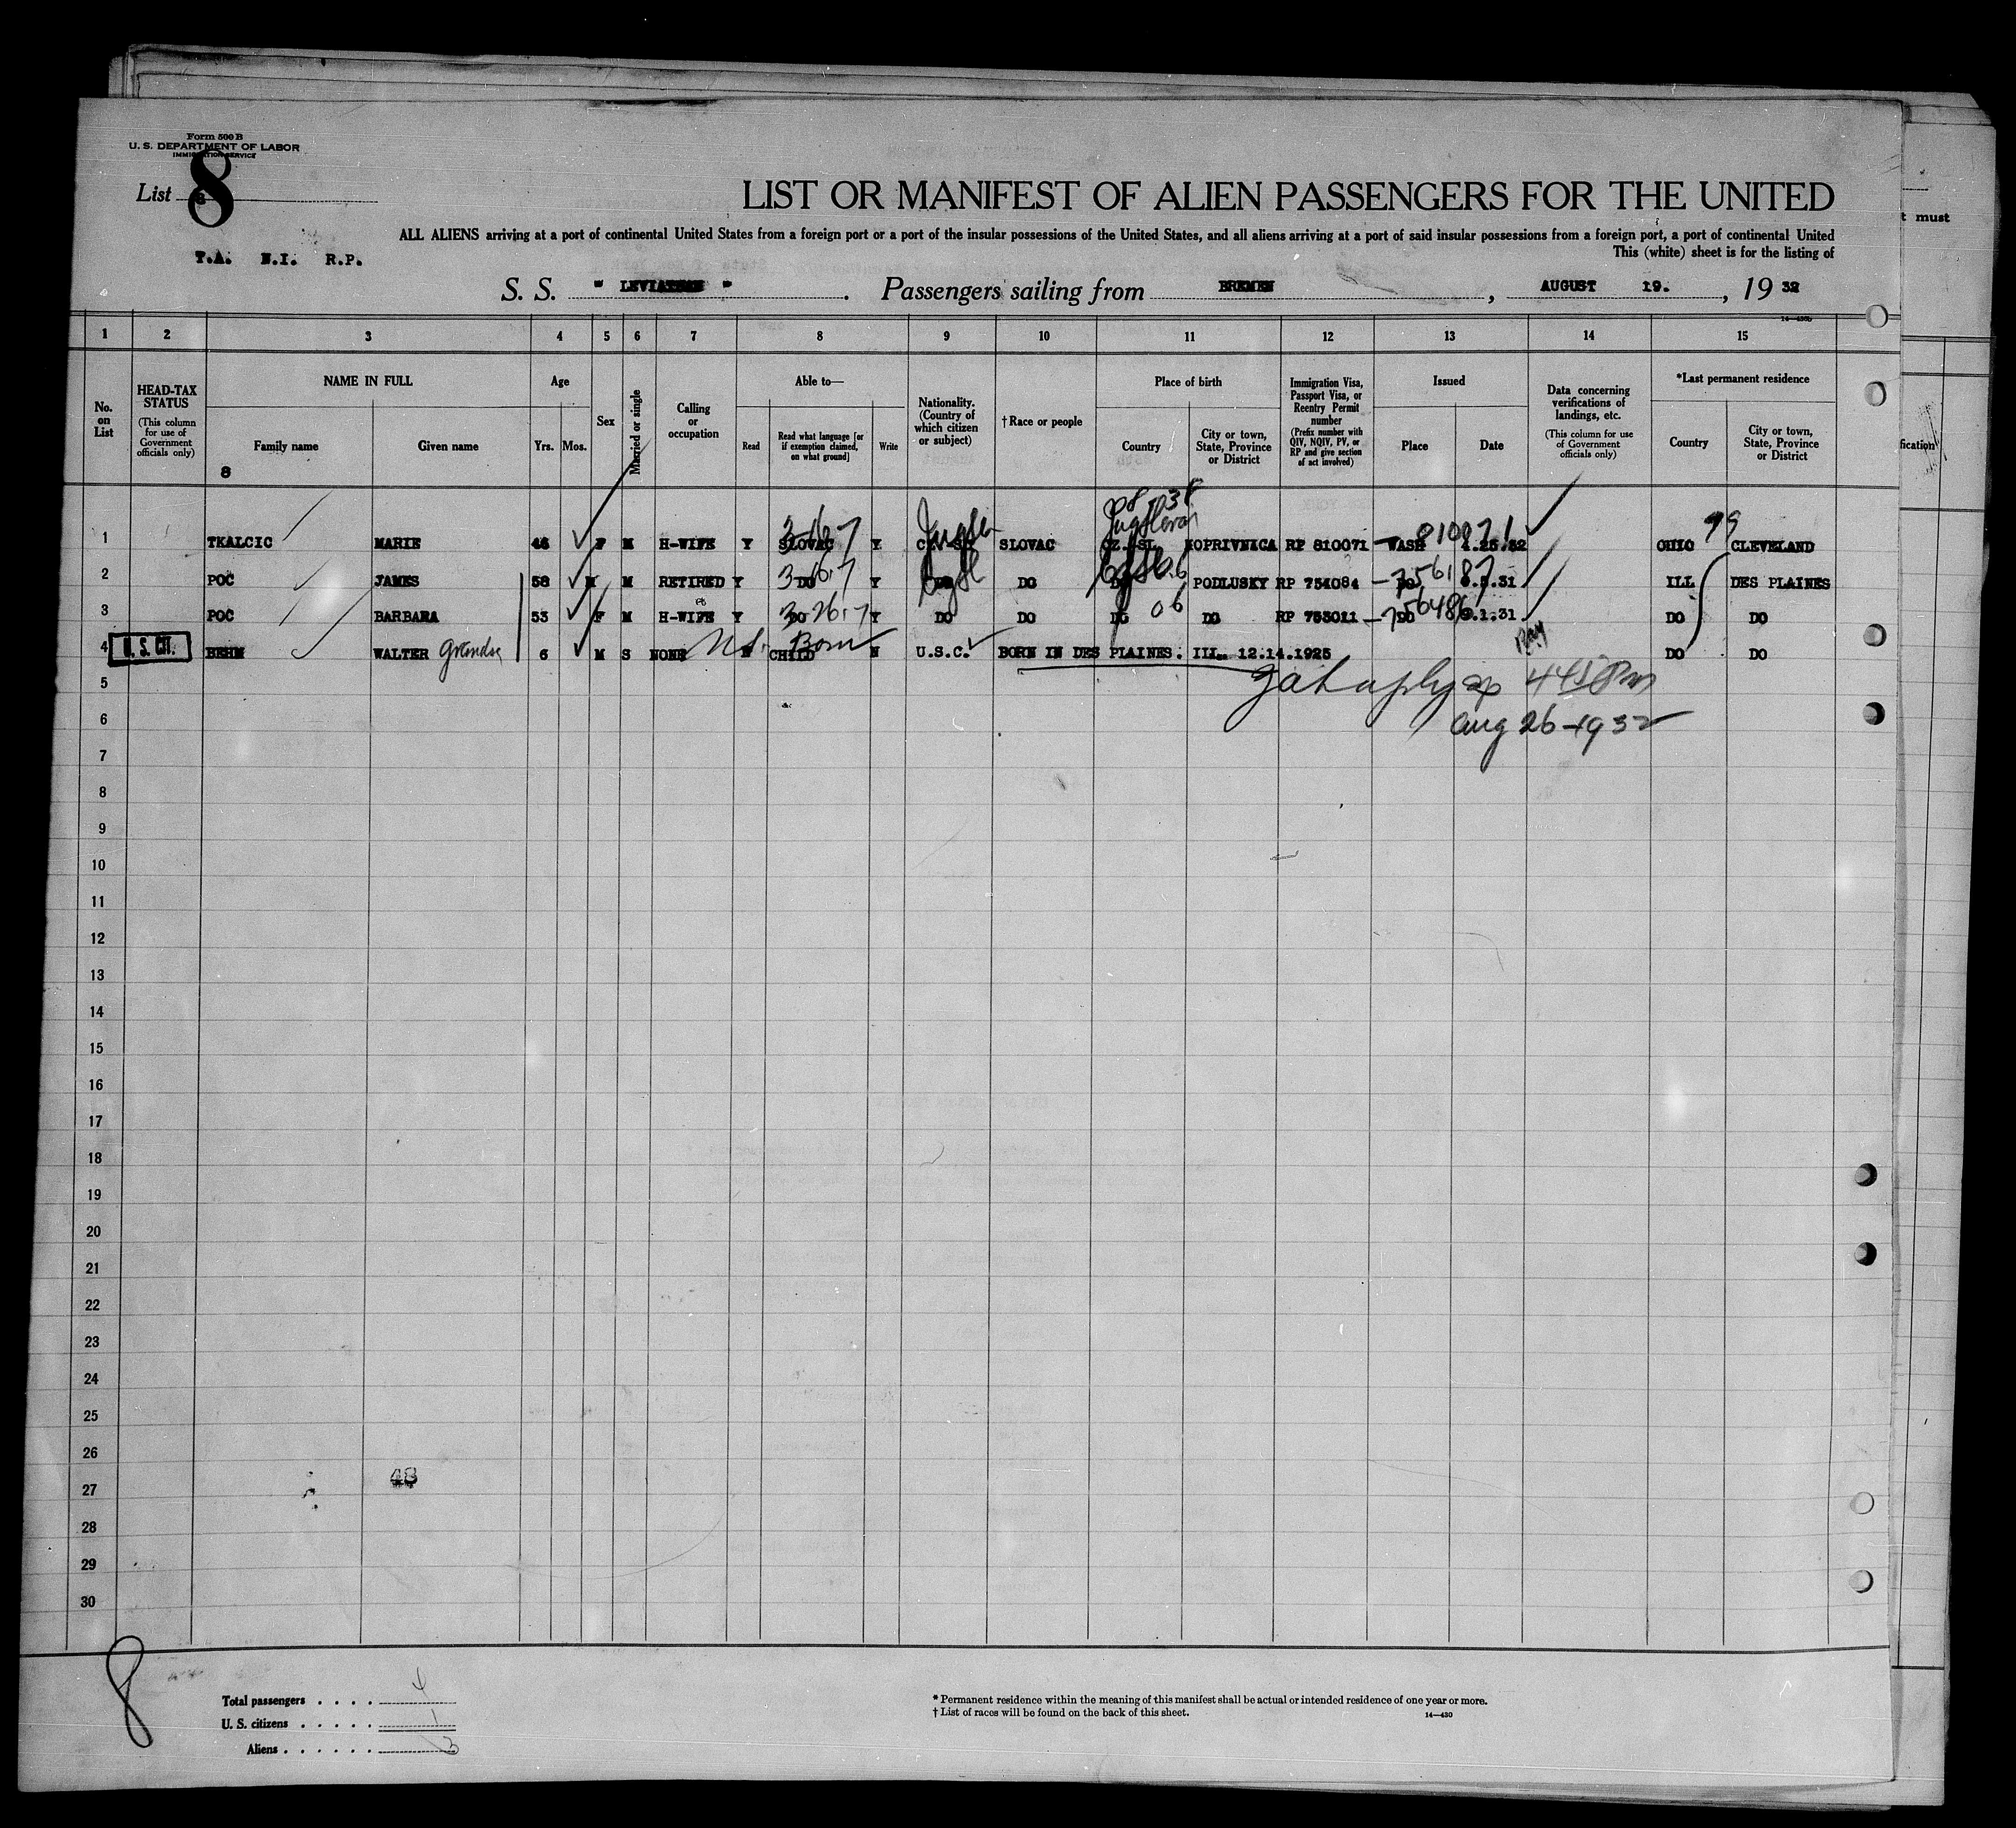 Form 500 B
U. S. DEPARTMENT OF LABOR
IMMIGRATION SERVICE
List 8
T.A. N.I. R.P.
LIST OR MANIFEST OF ALIEN PASSENGERS FOR THE UNITED
ALL ALIENS arriving at a port of continental United States from a foreign port or a port of the insular possessions of the United States, and all aliens arriving at a port of said insular possessions from a foreign port, a port of continental United
This (white) sheet is for the listing of
S. S. " LEVIATHAN ". Passengers sailing from BREMEN, AUGUST 19., 19 32
14—430b
1 2 3 4 5 6 7 8 9 10 11 12 13 14 15
No. on List
HEAD-TAX STATUS (This column for use of Government officials only)
NAME IN FULL
Family name
Given name
8
Age
Yrs. Mos.
Sex
Married or single
Calling or occupation
Able to—
Read
Read what language [or if exemption claimed, on what ground]
Write
Nationality. (Country of which citizen or subject)
†Race or people
Place of birth
Country
City or town, State, Province or District
Immigration Visa, Passport Visa, or Reentry Permit number (Prefix number with QIV, NQIV, PV, or RP and give section of act involved)
Issued
Place
Date
Data concerning verifications of landings, etc. (This column for use of Government officials only)
*Last permanent residence
Country
City or town, State, Province or District
1 TKALCIC MARIE 46 F M H-WIFE Y SLOVAC Y CZ.SL. SLOVAC CZ.SL. KOPRIVNICA RP 810071 WASH 810071 4.25.32 OHIO 99 CLEVELAND
2 POC JAMES 58 M M RETIRED Y DO Y DO DO DO PODLUSKY RP 754084 DO 756187 ILL DES PLAINES
3 POC BARBARA 53 F M H-WIFE Y DO Y DO DO DO DO RP 753011 DO 756486 DO DO
4 U. S. CIT. BEHM WALTER 6 M S NONE N CHILD N U.S.C. BORN IN DES PLAINES. ILL. 12.14.1925 DO DO
U.S. Born
4 45 PM
Aug 26-1932
5
6
7
8
9
10
11
12
13
14
15
16
17
18
19
20
21
22
23
24
25
26
48
27
28
29
30
8
Total passengers . . . . 4
U. S. citizens . . . . . 1
Aliens . . . . . . 3
* Permanent residence within the meaning of this manifest shall be actual or intended residence of one year or more.
† List of races will be found on the back of this sheet.
14—430
t must
fication